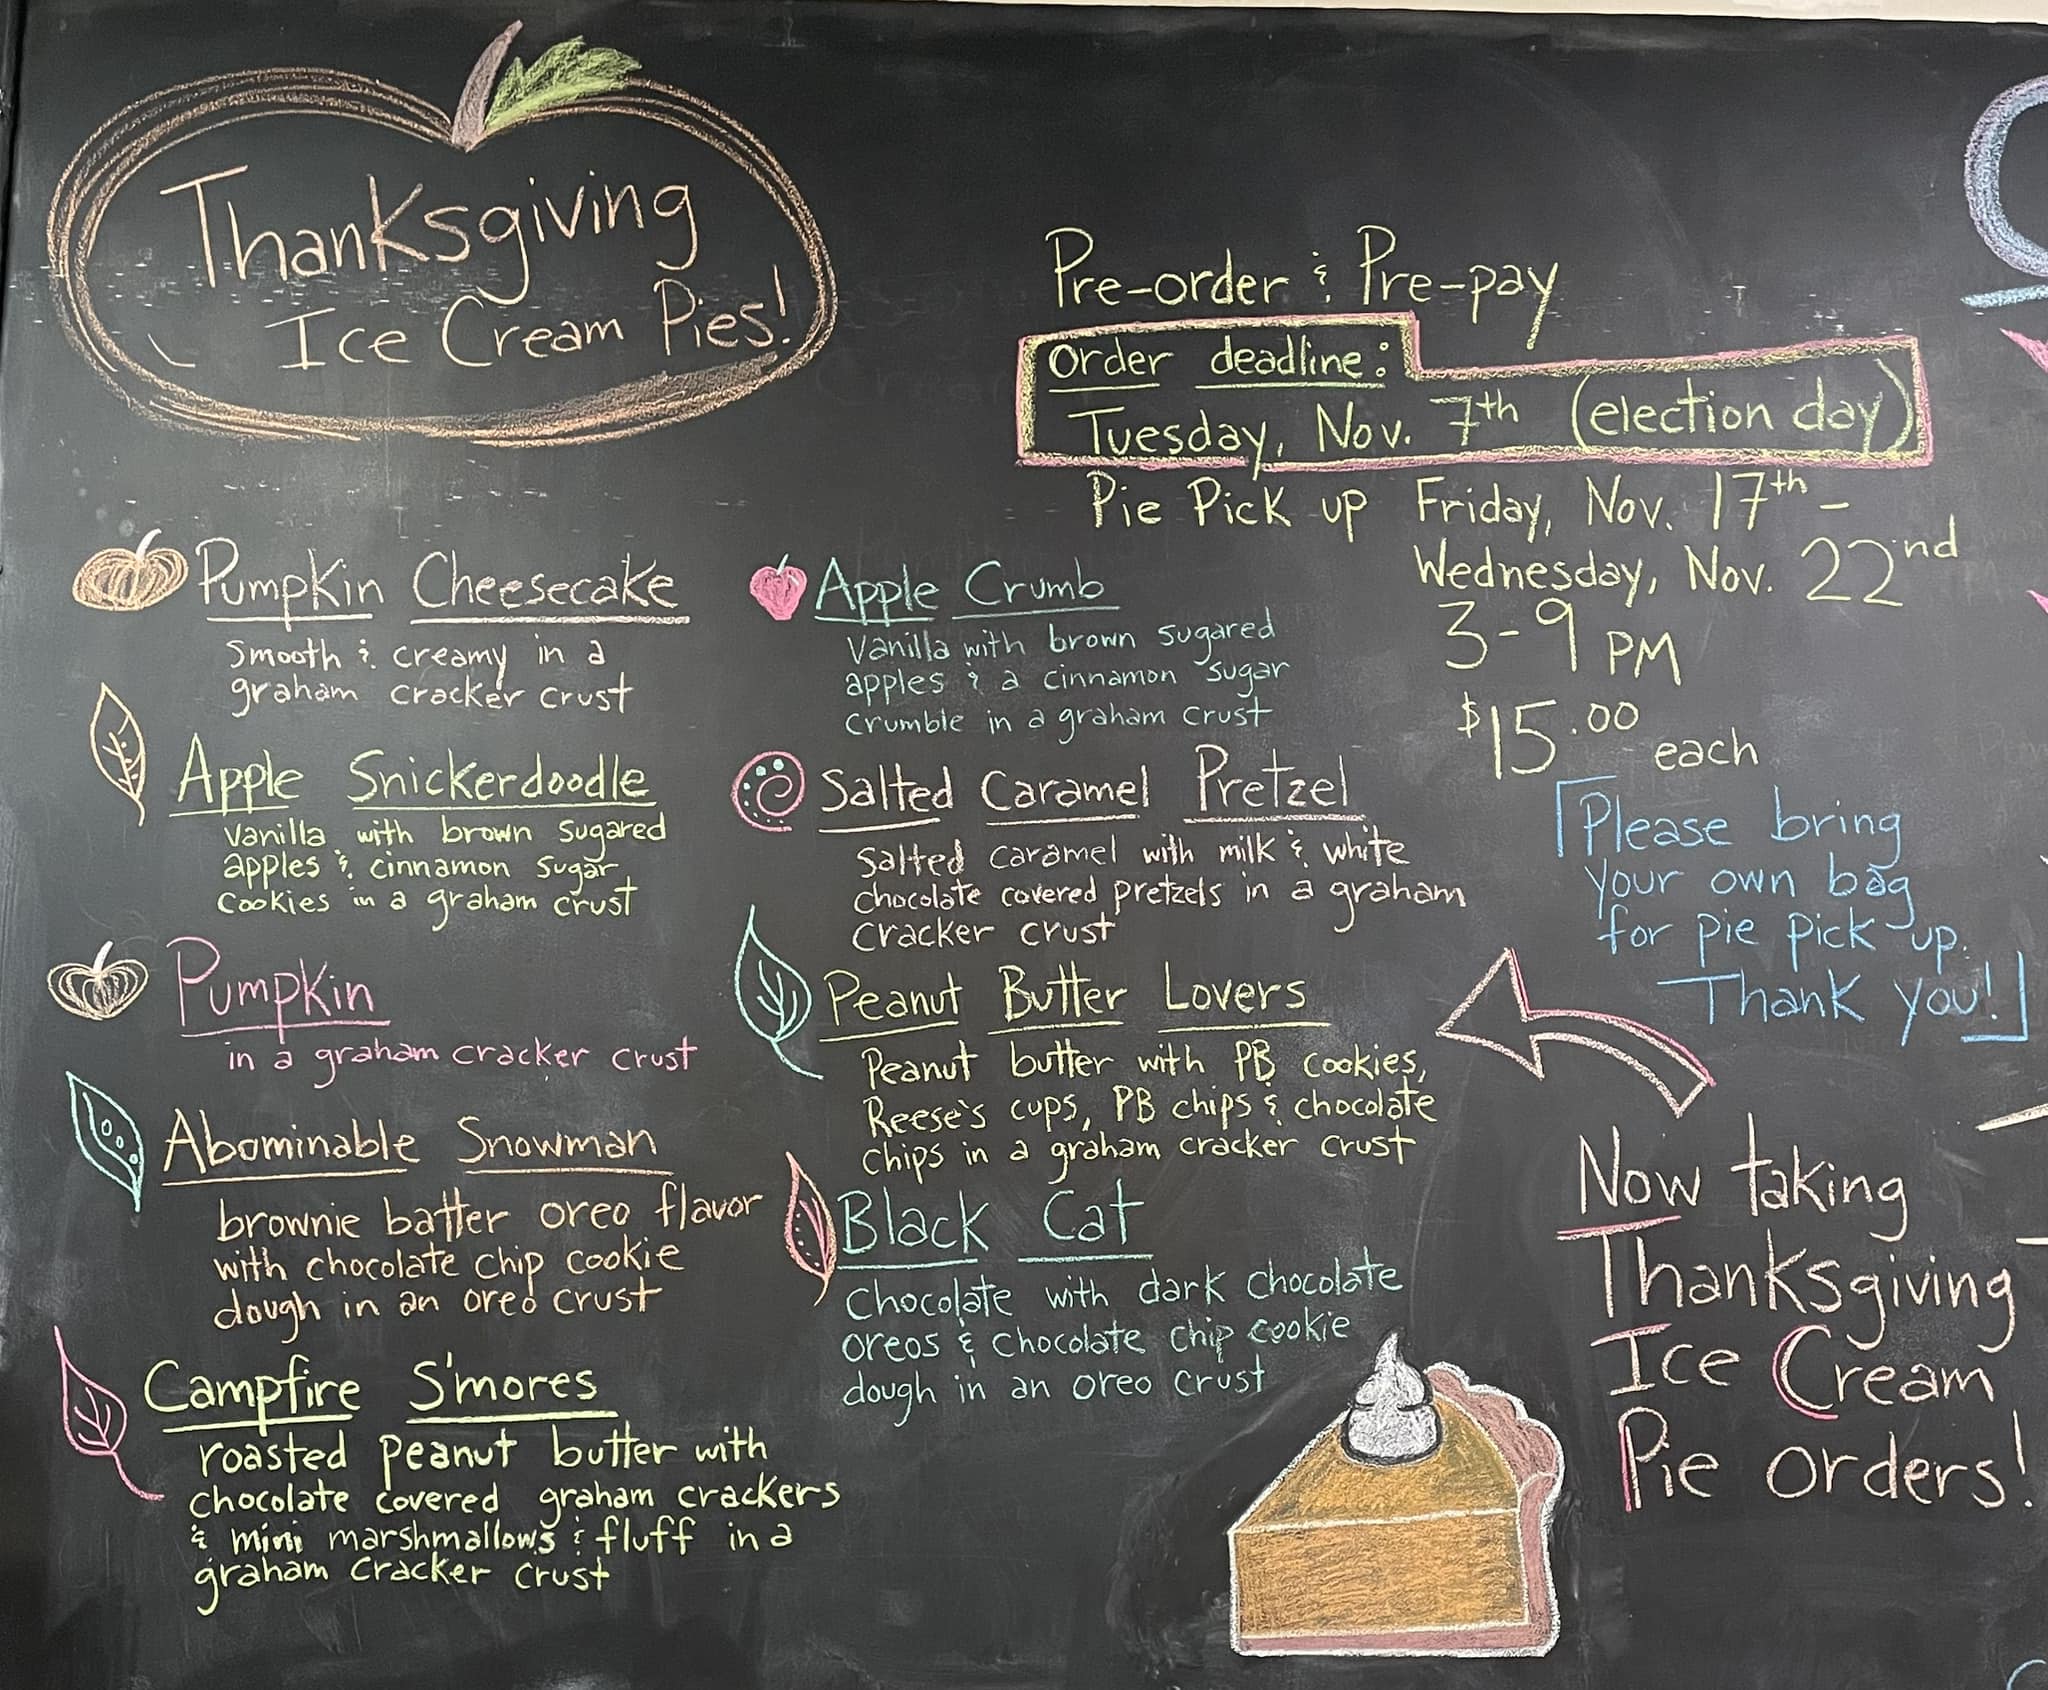 Thanksgiving
Ice Cream Pies!
Pumpkin Cheesecake
Smooth & creamy in a
graham cracker crust
Apple Snickerdoodle
vanilla with brown sugared
apples & cinnamon sugar
cookies in a graham crust
Pumpkin
in a graham cracker crust
Abominable Snowman
brownie batter oreo flavor
with chocolate chip cookie
dough in an oreo crust
Campfire S'mores
roasted peanut butter with
chocolate covered graham crackers
& mini marshmallows & fluff in a
graham cracker crust
Apple Crumb
Vanilla with brown sugared
apples & a cinnamon sugar
crumble in a graham crust
Salted Caramel Pretzel
Salted caramel with milk & white
chocolate covered pretzels in a graham
cracker crust
Peanut Butter Lovers
Peanut butter with PB cookies,
Reese's cups, PB chips & chocolate
chips in a graham cracker crust
Black Cat
Chocolate with dark chocolate
oreos & chocolate chip cookie
dough in an oreo crust
Pre-order & Pre-pay
Order deadline:
Tuesday, Nov. 7th (election day)
Pie Pick up Friday, Nov. 17th -
Wednesday, Nov. 22nd
3-9 PM
$15.00 each
Please bring
your own bag
for pie pick up.
Thank you!
Now taking
Thanksgiving
Ice Cream
Pie orders!